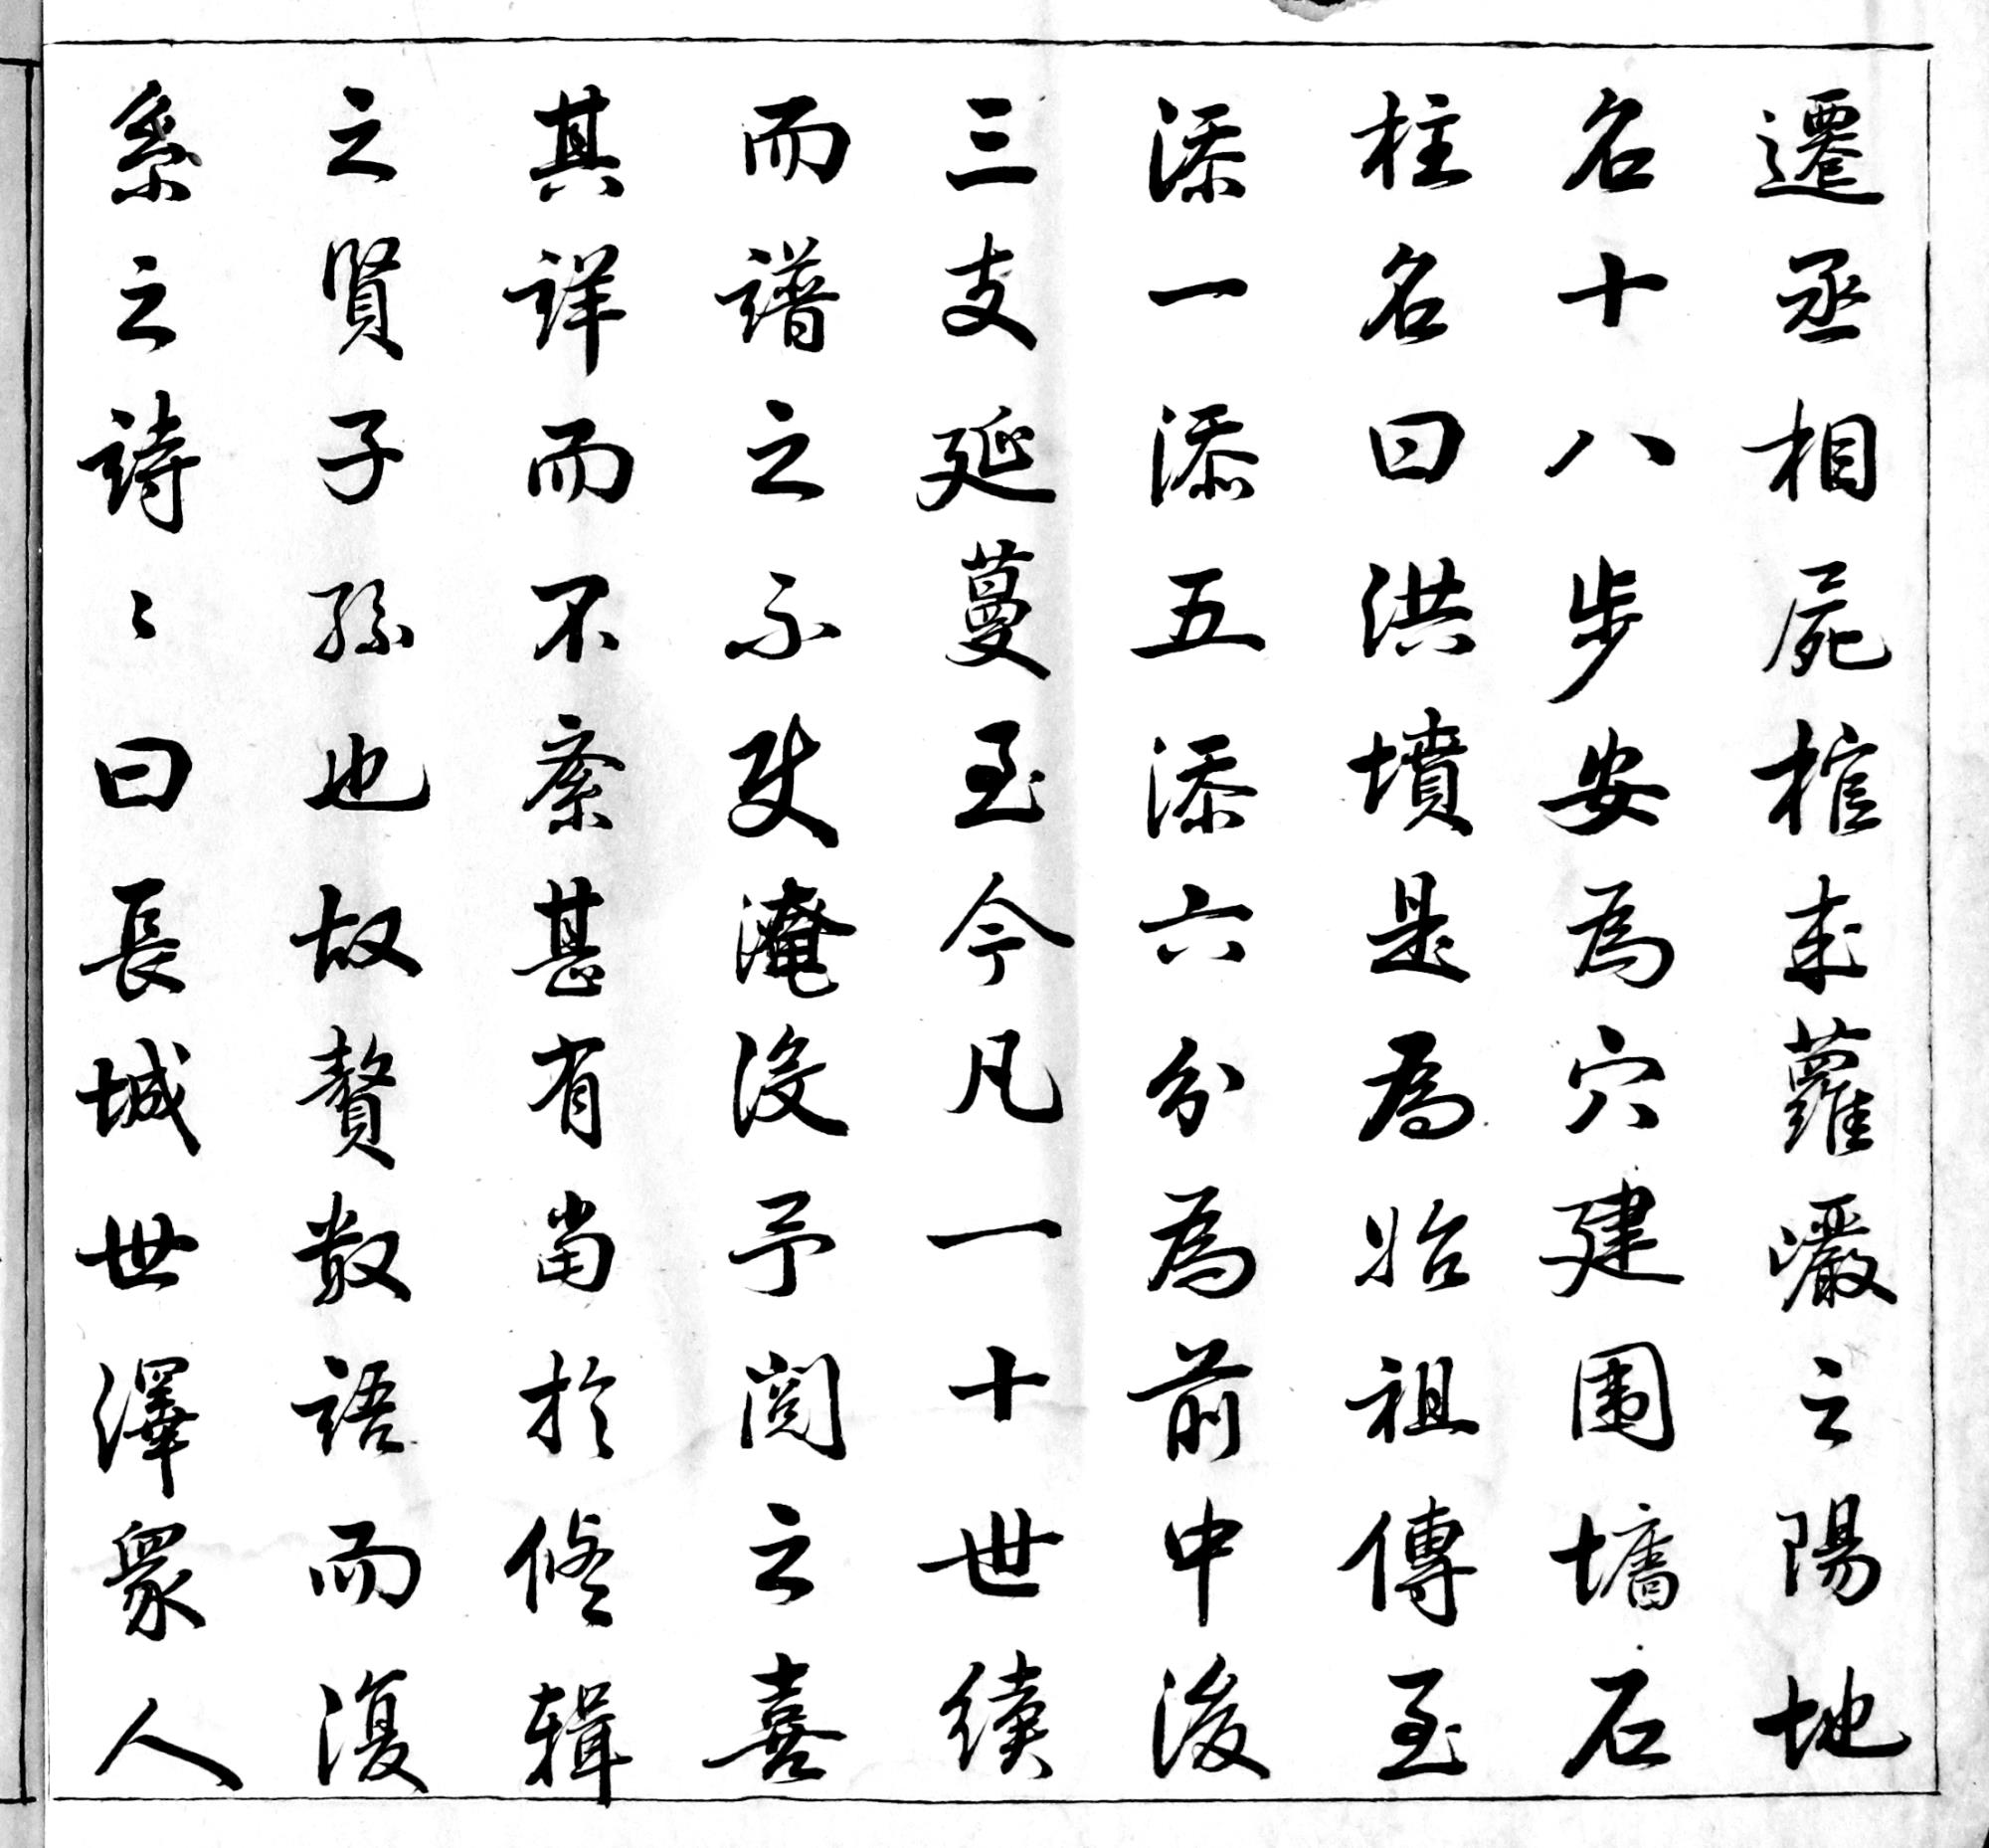 遷丞相屍棺求蘿巖之陽地
名十八步安為穴建圍墻石
柱名曰洪墳是為始祖傳至
添一添五添六分為前中後
三支延蔓至今凡一十世續
而譜之不使淹沒予閱之喜
其詳而不紊甚有當於修輯
之賢子孫也故贅散語而復
系之詩〻曰長城世澤眾人